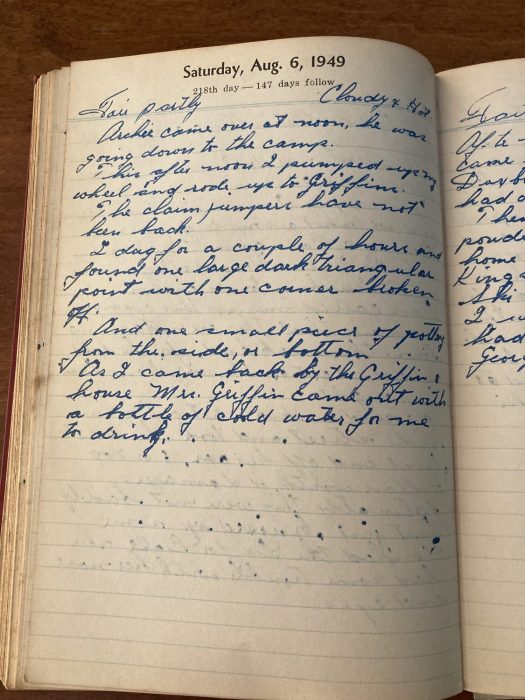 Saturday, Aug. 6, 1949
218th day — 147 days follow
Fair partly Cloudy & Hot
Archie came over at noon, he was
going down to the camp.
This after noon I pumped up my
wheel and rode up to Griffins.
The claim jumpers have not
been back.
I dug for a couple of hours and
found one large dark triangular
point with one corner broken
off.
And one small piece of pottery
from the side, or bottom
As I came back by the Griffin
house Mrs. Griffin came out with
a bottle of cold water for me
to drink.
Fair
Afte
came
Day
had
The
powde
home
King
Ski
I
had
Geor